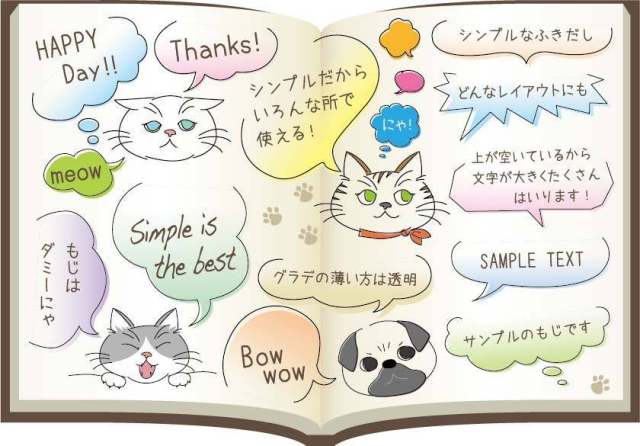 HAPPY
Day!!
Thanks!
meow
もじは
ダミーにゃ
Simple is
the best
シンプルだから
いろんな所で
使える!
にゃ!
グラデの薄い方は透明
Bow
wow
シンプルなふきだし
どんなレイアウトにも
上が空いているから
文字が大きくたくさん
はいります!
SAMPLE TEXT
サンプルのもじです